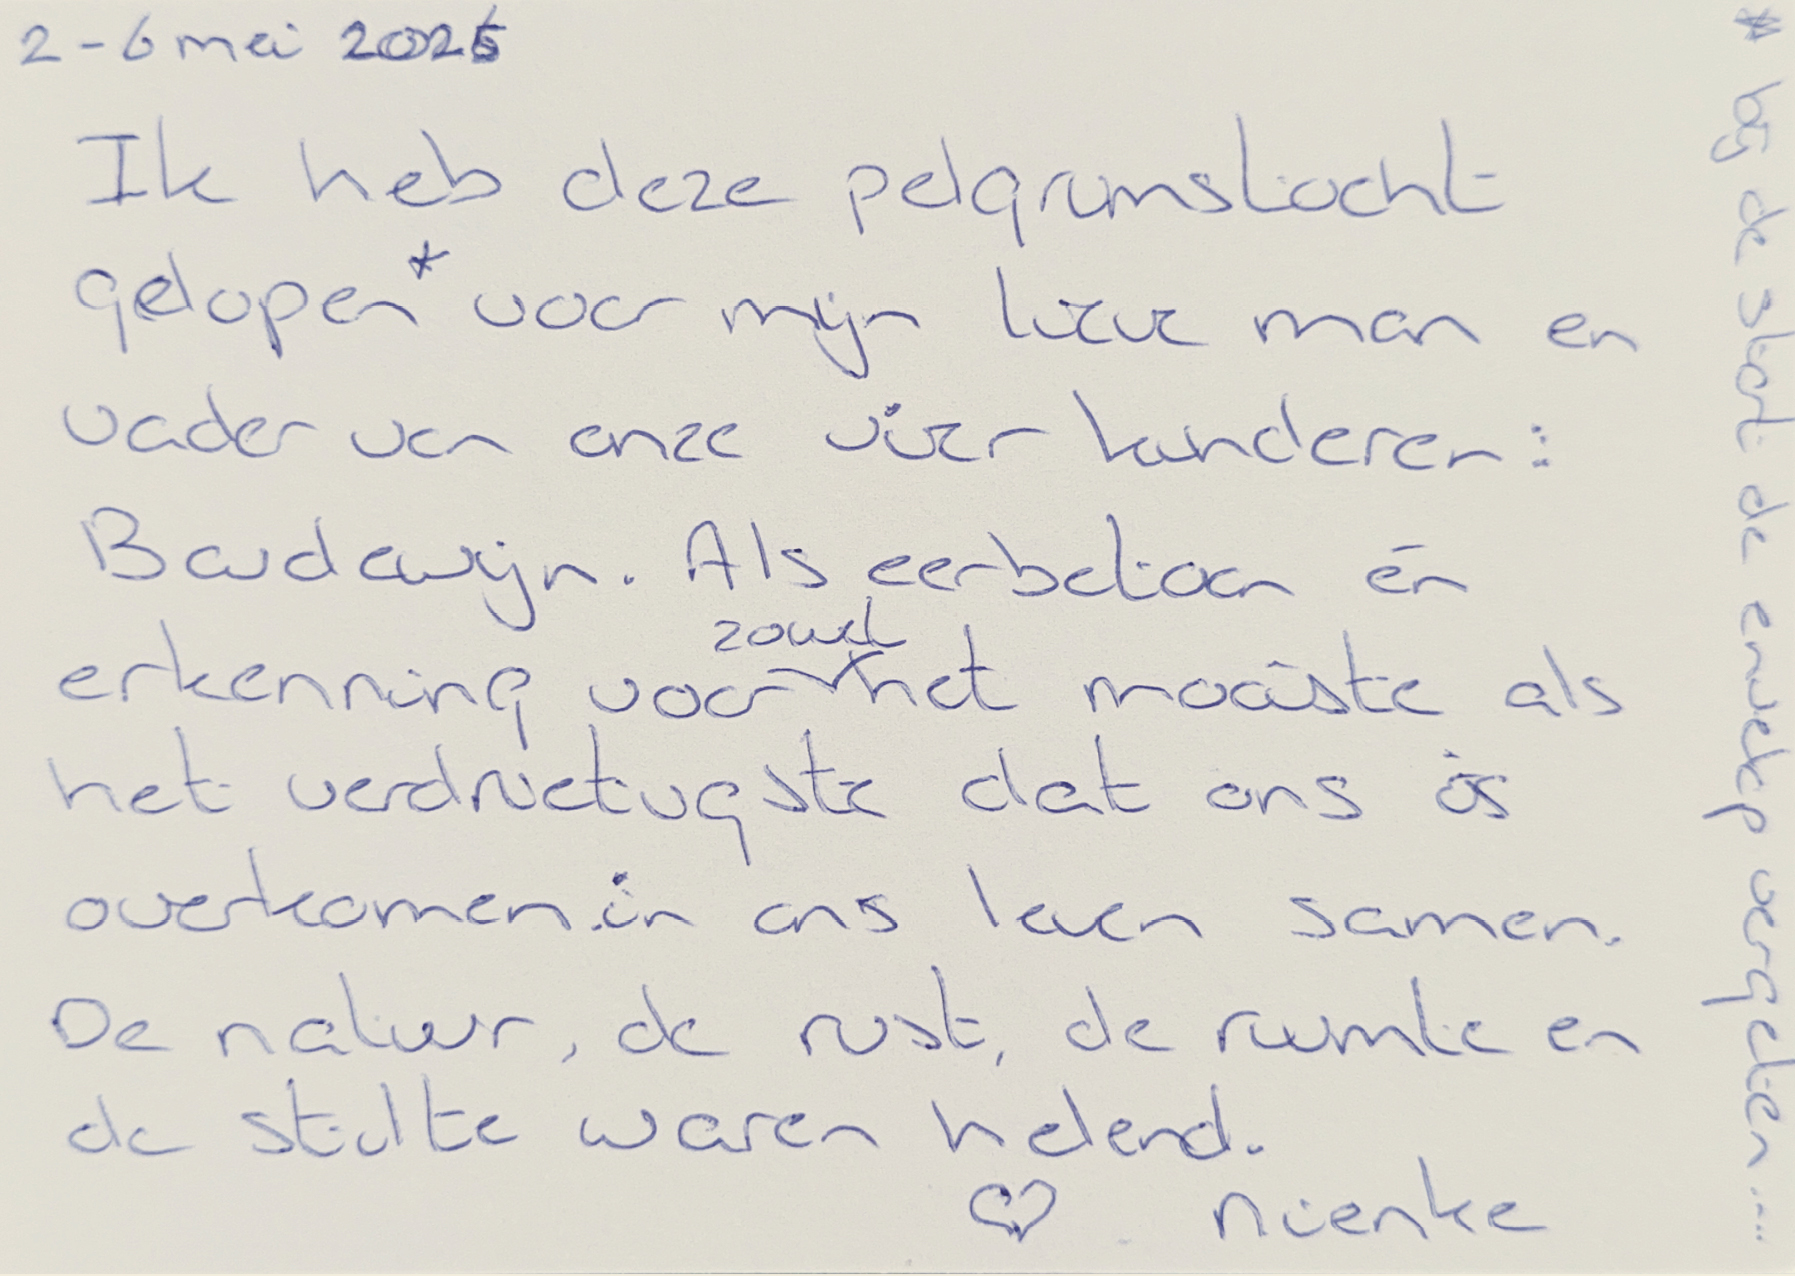 2-6 mei 2025
Ik heb deze pelgrimstocht
gelopen* voor mijn lieve man en
vader van onze vier kinderen:
Boudewijn. Als eerbetoon én
zowel
erkenning voor het mooiste als
het verdrietigste dat ons is
overkomen in ons leven samen.
De natuur, de rust, de ruimte en
de stilte waren helend.
♡ Nienke
* bij de start de envelop vergeten...